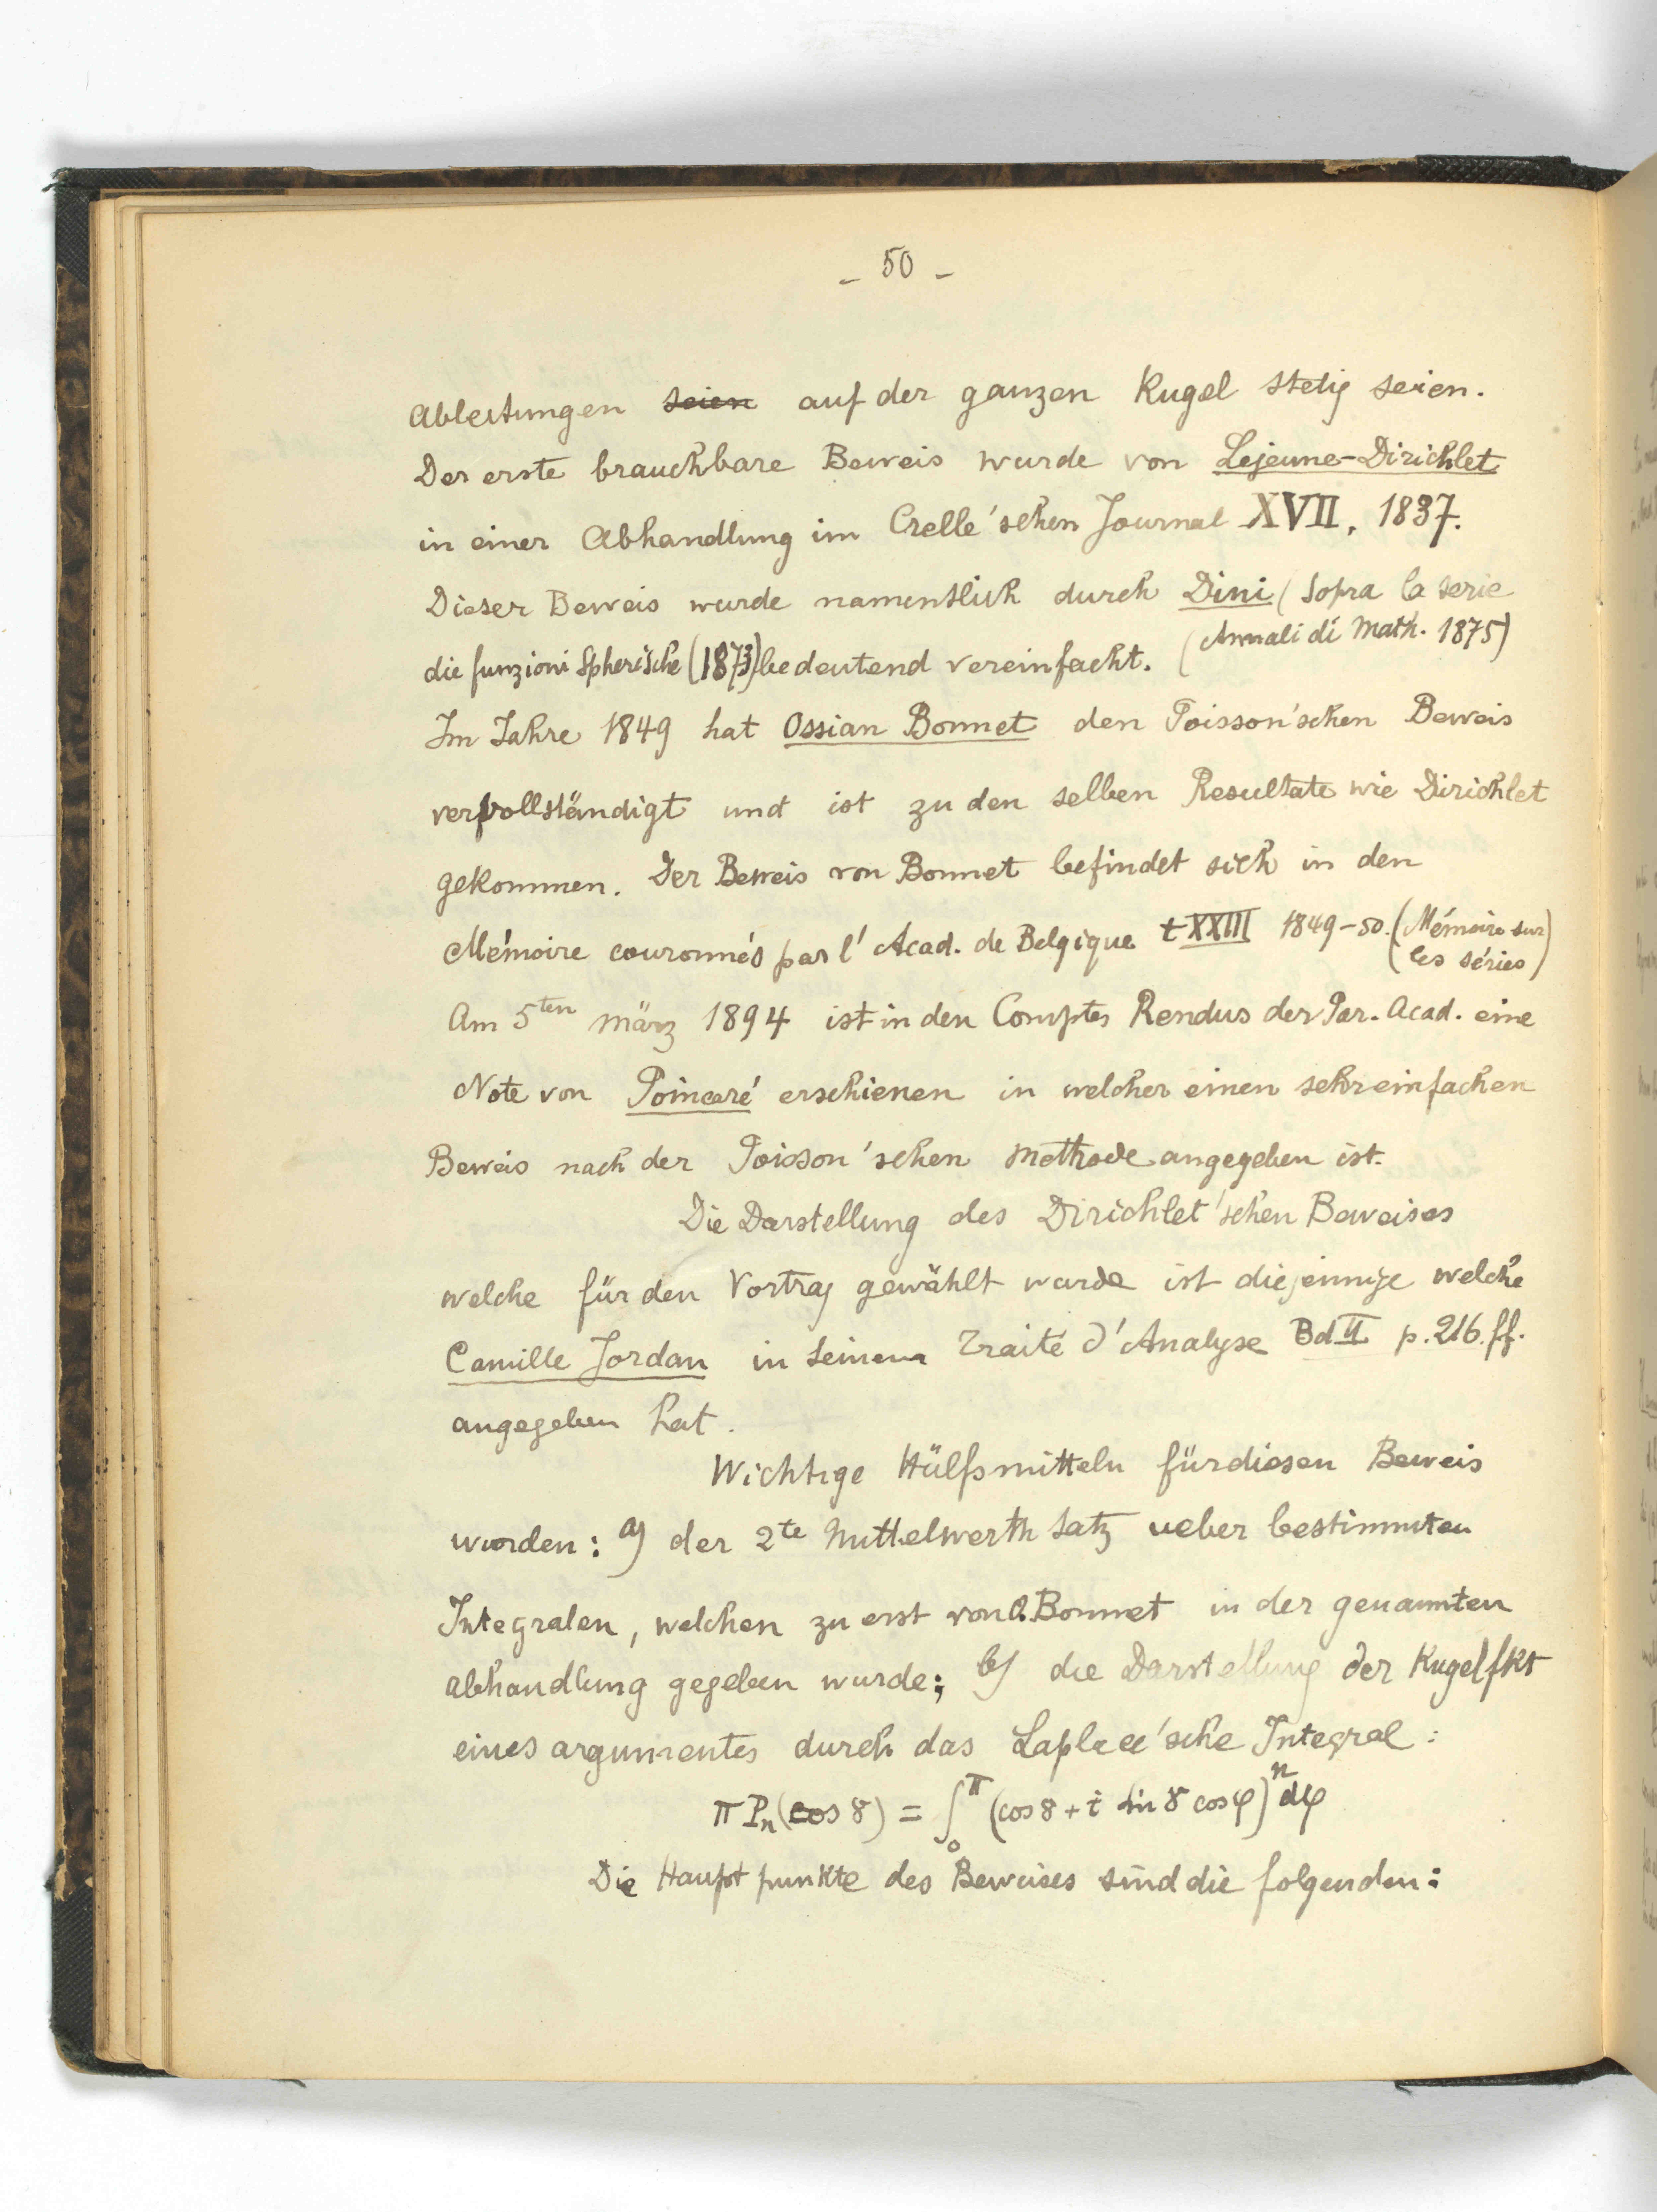 - 50 -
Ableitungen seien auf der ganzen Kugel stetig seien.
Der erste brauchbare Beweis wurde von Lejeune-Dirichlet
in einer Abhandlung im Crelle'schen Journal XVII, 1837.
Dieser Beweis wurde namentlich durch Dini (Sopra la serie
die funzioni Spherische (1873) bedeutend vereinfacht. (Annali di Math. 1875)
Im Jahre 1849 hat Ossian Bonnet den Poisson'schen Beweis
vervollständigt und ist zu den selben Resultate wie Dirichlet
gekommen. Der Beweis von Bonnet befindet sich in den
Mémoire couronnés par l'Acad. de Belgique t XXIII 1849-50. (Mémoire sur
les séries)
Am 5ten März 1894 ist in den Comptes Rendus der Par. Acad. eine
Note von Poincaré erschienen in welcher einen sehr einfachen
Beweis nach der Poisson'schen Methode angegeben ist.
Die Darstellung des Dirichlet'schen Beweises
welche für den Vortrag gewählt wurde ist diejennige welche
Camille Jordan in seinem Traité d'Analyse Bd II p. 216. ff.
angegeben hat.
Wichtige Hülfsmitteln für diesen Beweis
wurden: a) der 2te Mittelwerth Satz ueber bestimmten
Integralen, welchen zu erst von O. Bonnet in der genannten
Abhandlung gegeben wurde; b) die Darstellung der Kugelfkt
eines argumentes durch das Laplace'sche Integral:
π Pn (cos γ) = ∫₀^π (cos γ + i sin γ cos φ)^n dφ
Die Hauptpunkte des Beweises sind die folgenden: